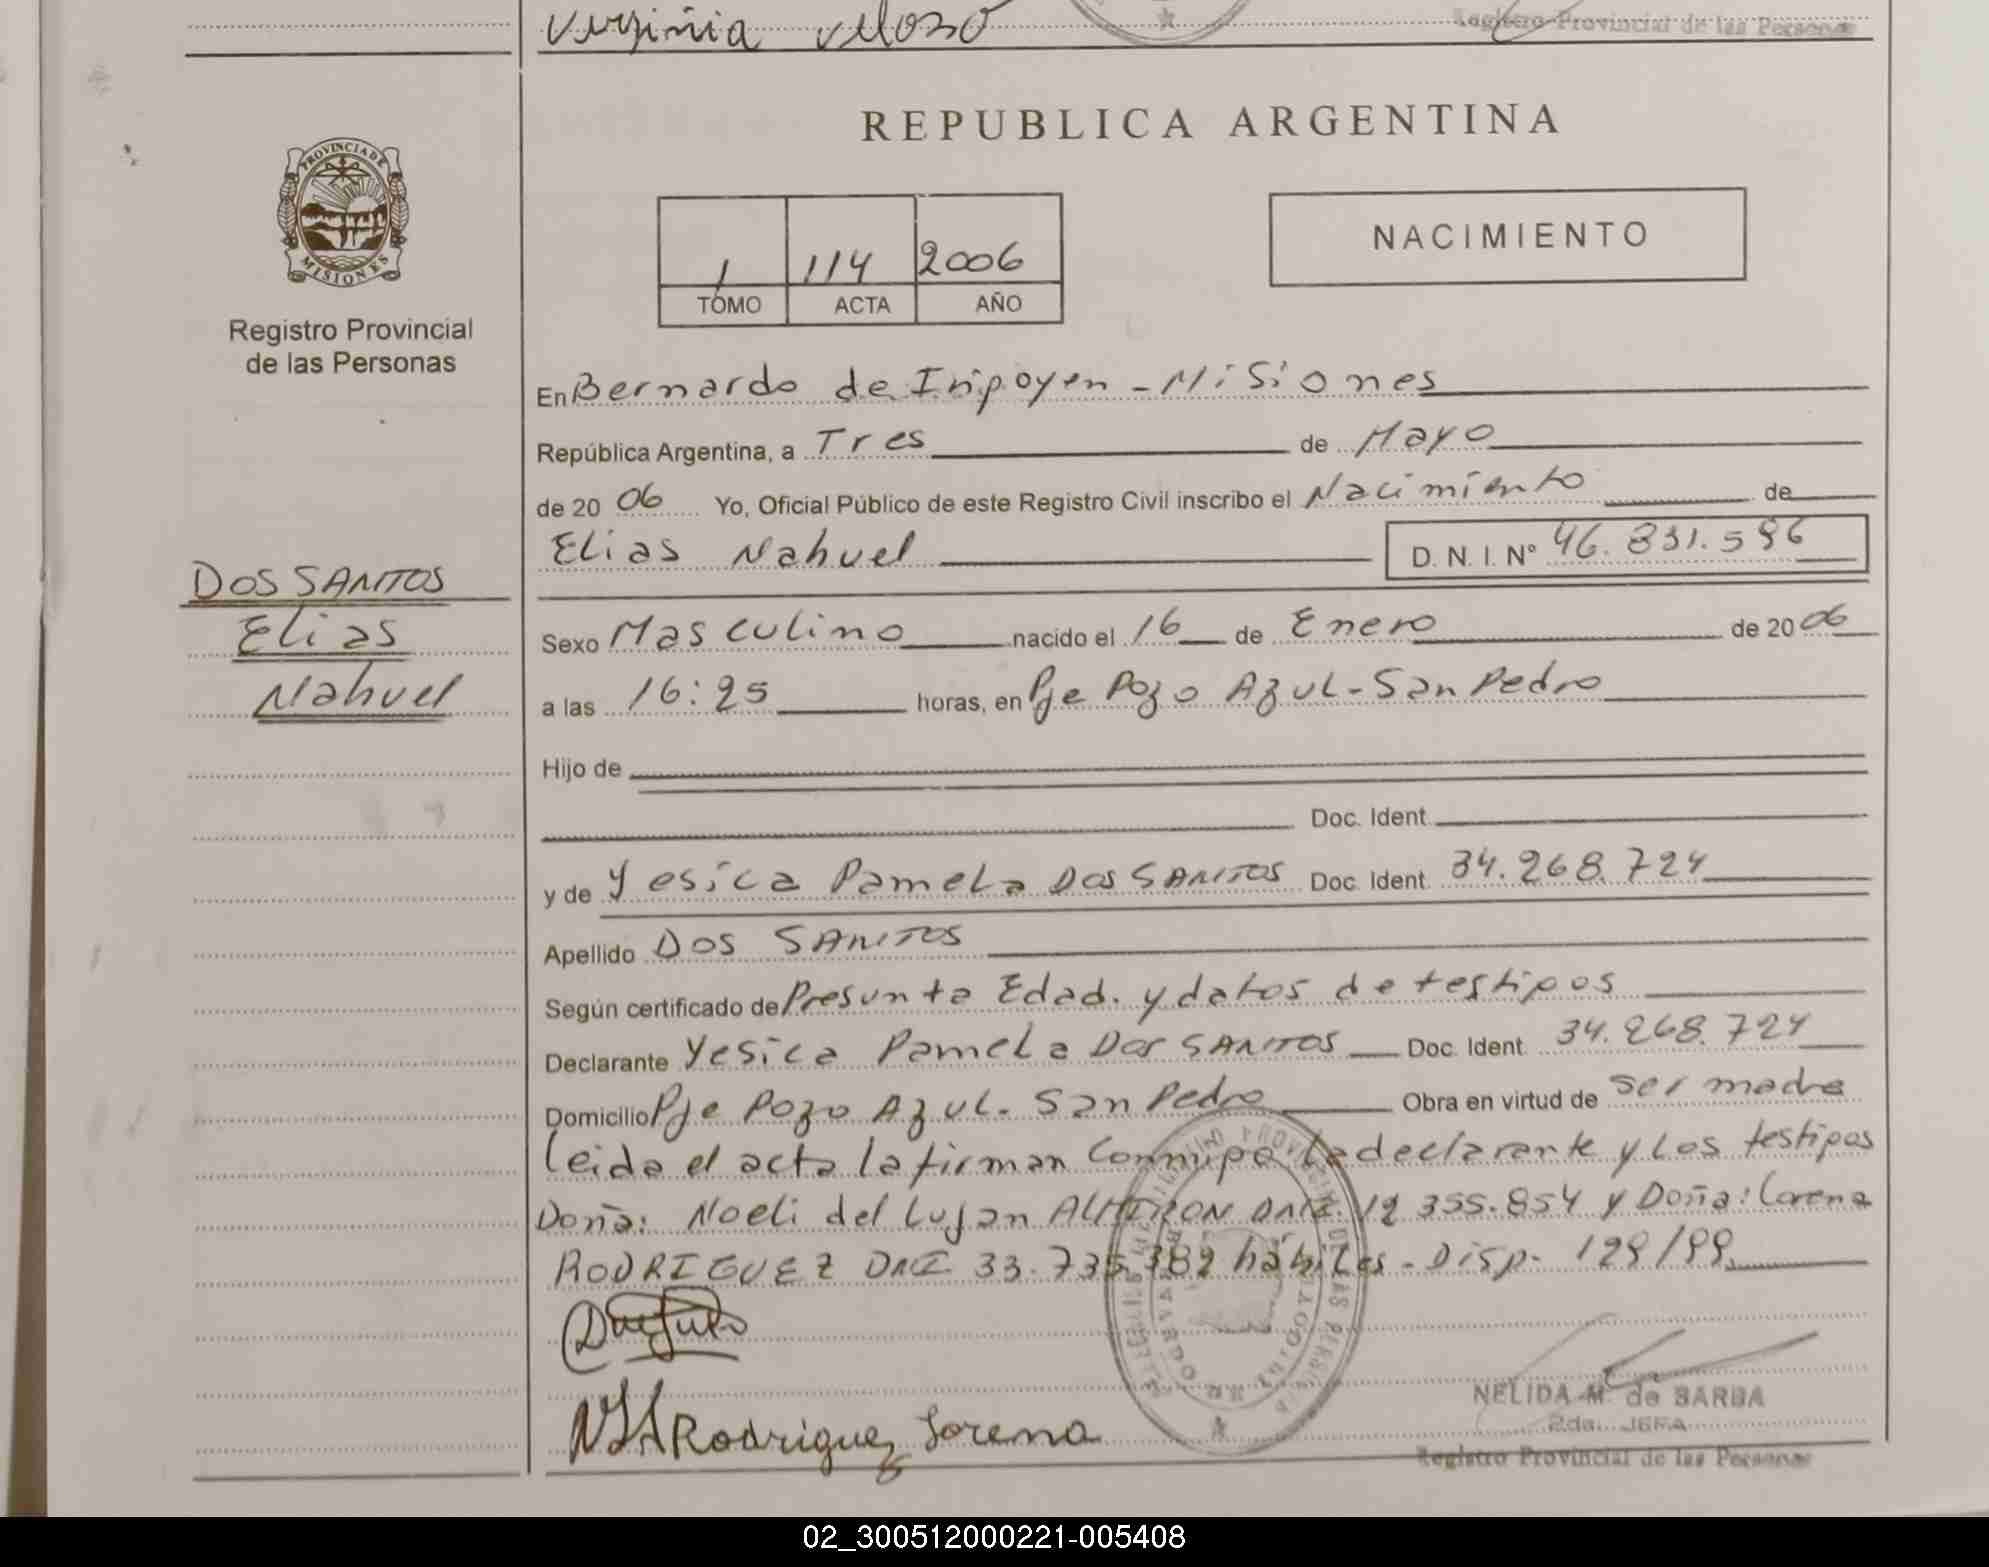 Virginia Mozo
Registro Provincial de las Personas
REPUBLICA ARGENTINA
PROVINCIA DE
MISIONES
Registro Provincial
de las Personas
1 114 2006
TOMO ACTA AÑO
NACIMIENTO
En Bernardo de Iripoyen - Misiones
República Argentina, a Tres de Mayo
de 20 06 Yo, Oficial Público de este Registro Civil inscribo el Nacimiento de
Elias Nahuel D. N. I. Nº 46.831.596
DOS SANTOS
Elias
Nahuel
Sexo Masculino nacido el 16 de Enero de 20 06
a las 16:25 horas, en Pje Pozo Azul - San Pedro
Hijo de
Doc. Ident.
y de Yesica Pamela DOS SANTOS Doc. Ident. 34.268.724
Apellido DOS SANTOS
Según certificado de Presunta Edad. y datos de testipos
Declarante Yesica Pamela Dos SANTOS Doc. Ident. 34.268.724
Domicilio Pje Pozo Azul. San Pedro Obra en virtud de ser madre
leida el acta la firman Conmipo la declarante y Los testipos
Doña: Noeli del Lujan ALMIRON DNI. 12 355.854 y Doña: Lorena
RODRIGUEZ DNI 33.735.382 hábiles - Disp. 129/99
Rodriguez Lorena
NELIDA M. de BARBA
2da. JEFA
Registro Provincial de las Personas
02_300512000221-005408